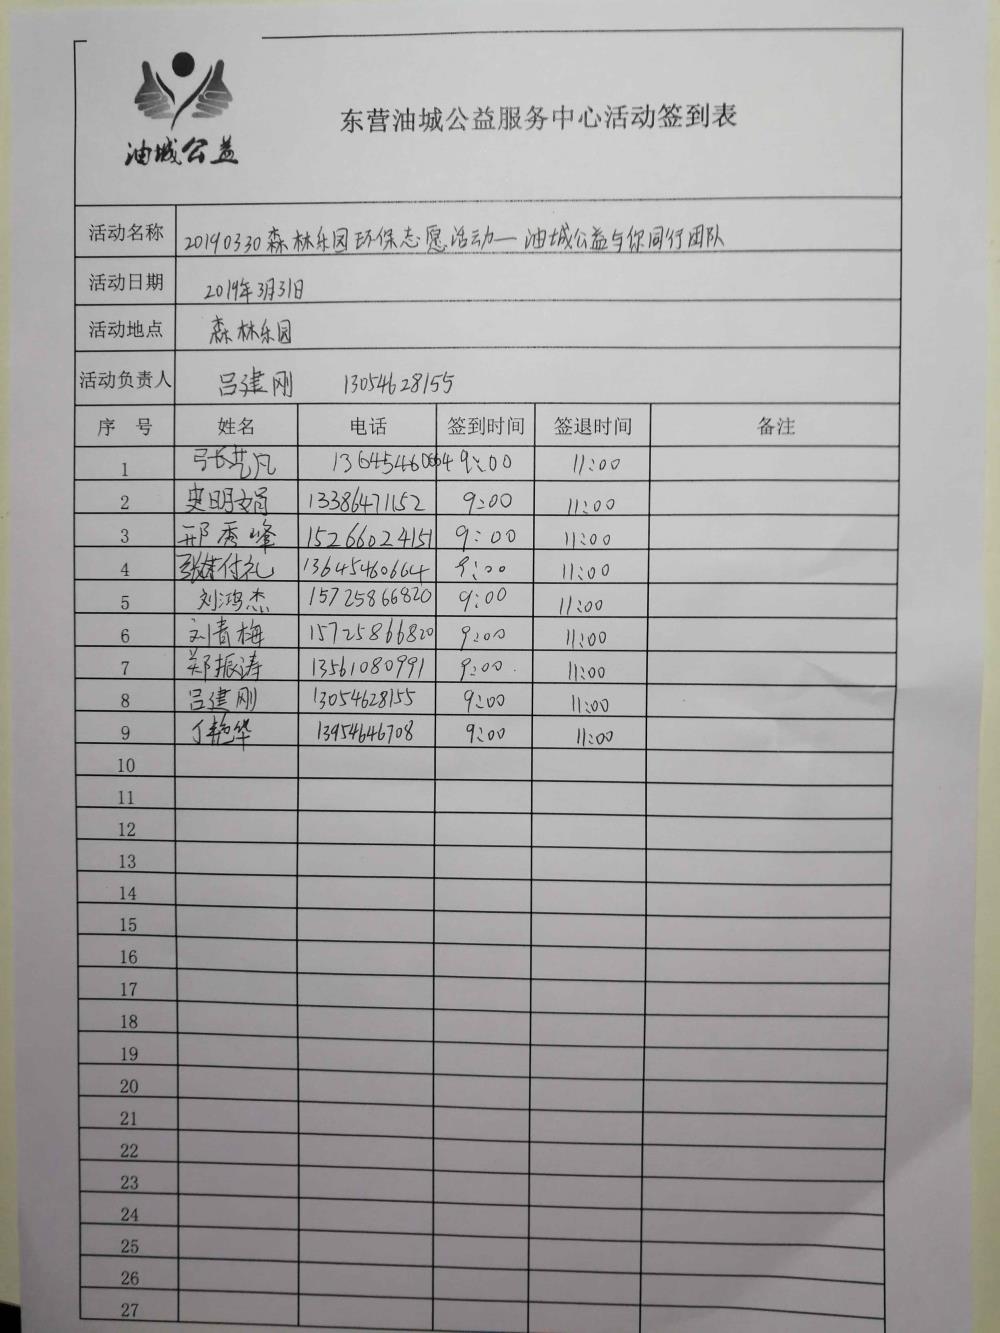 油城公益
东营油城公益服务中心活动签到表
活动名称 20190330森林乐园环保志愿活动—油城公益与你同行团队
活动日期 2019年3月31日
活动地点 森林乐园
活动负责人 吕建刚 13054628155
序号 姓名 电话 签到时间 签退时间 备注
1 张艺凡 13645460664 9:00 11:00
2 史明娟 13386471152 9:00 11:00
3 邢秀峰 15266024151 9:00 11:00
4 张付礼 13645460664 9:00 11:00
5 刘鸿杰 15725866820 9:00 11:00
6 刘青梅 15725866820 9:00 11:00
7 郑振涛 13561080991 9:00 11:00
8 吕建刚 13054628155 9:00 11:00
9 丁艳华 13954646708 9:00 11:00
10
11
12
13
14
15
16
17
18
19
20
21
22
23
24
25
26
27